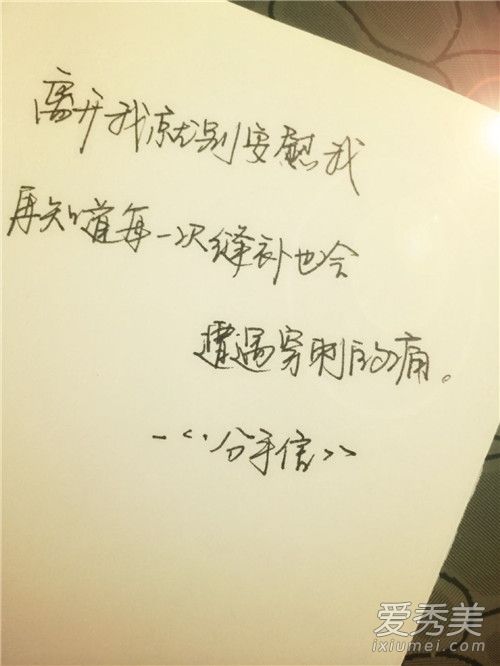 离开我就别安慰我
要知道每一次缝补也会
遭遇穿刺的痛。
—《分手信》
爱秀美
ixiumei.com